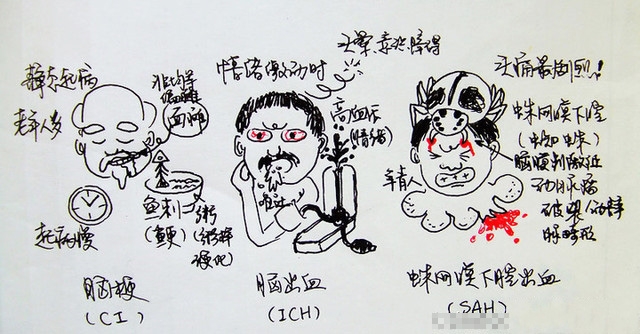 静态起病
老年人多
血滩
起病慢
鱼刺
(鲠)
粥
脑梗
(CI)
情绪激动时
头晕、意识障碍
高血压
(情绪)
呕吐
脑出血
(ICH)
头痛最剧烈!
蛛网膜下腔
(蜘蛛)
脑膜刺激征
年青人
动脉瘤
破裂
蛛网膜下腔出血
(SAH)